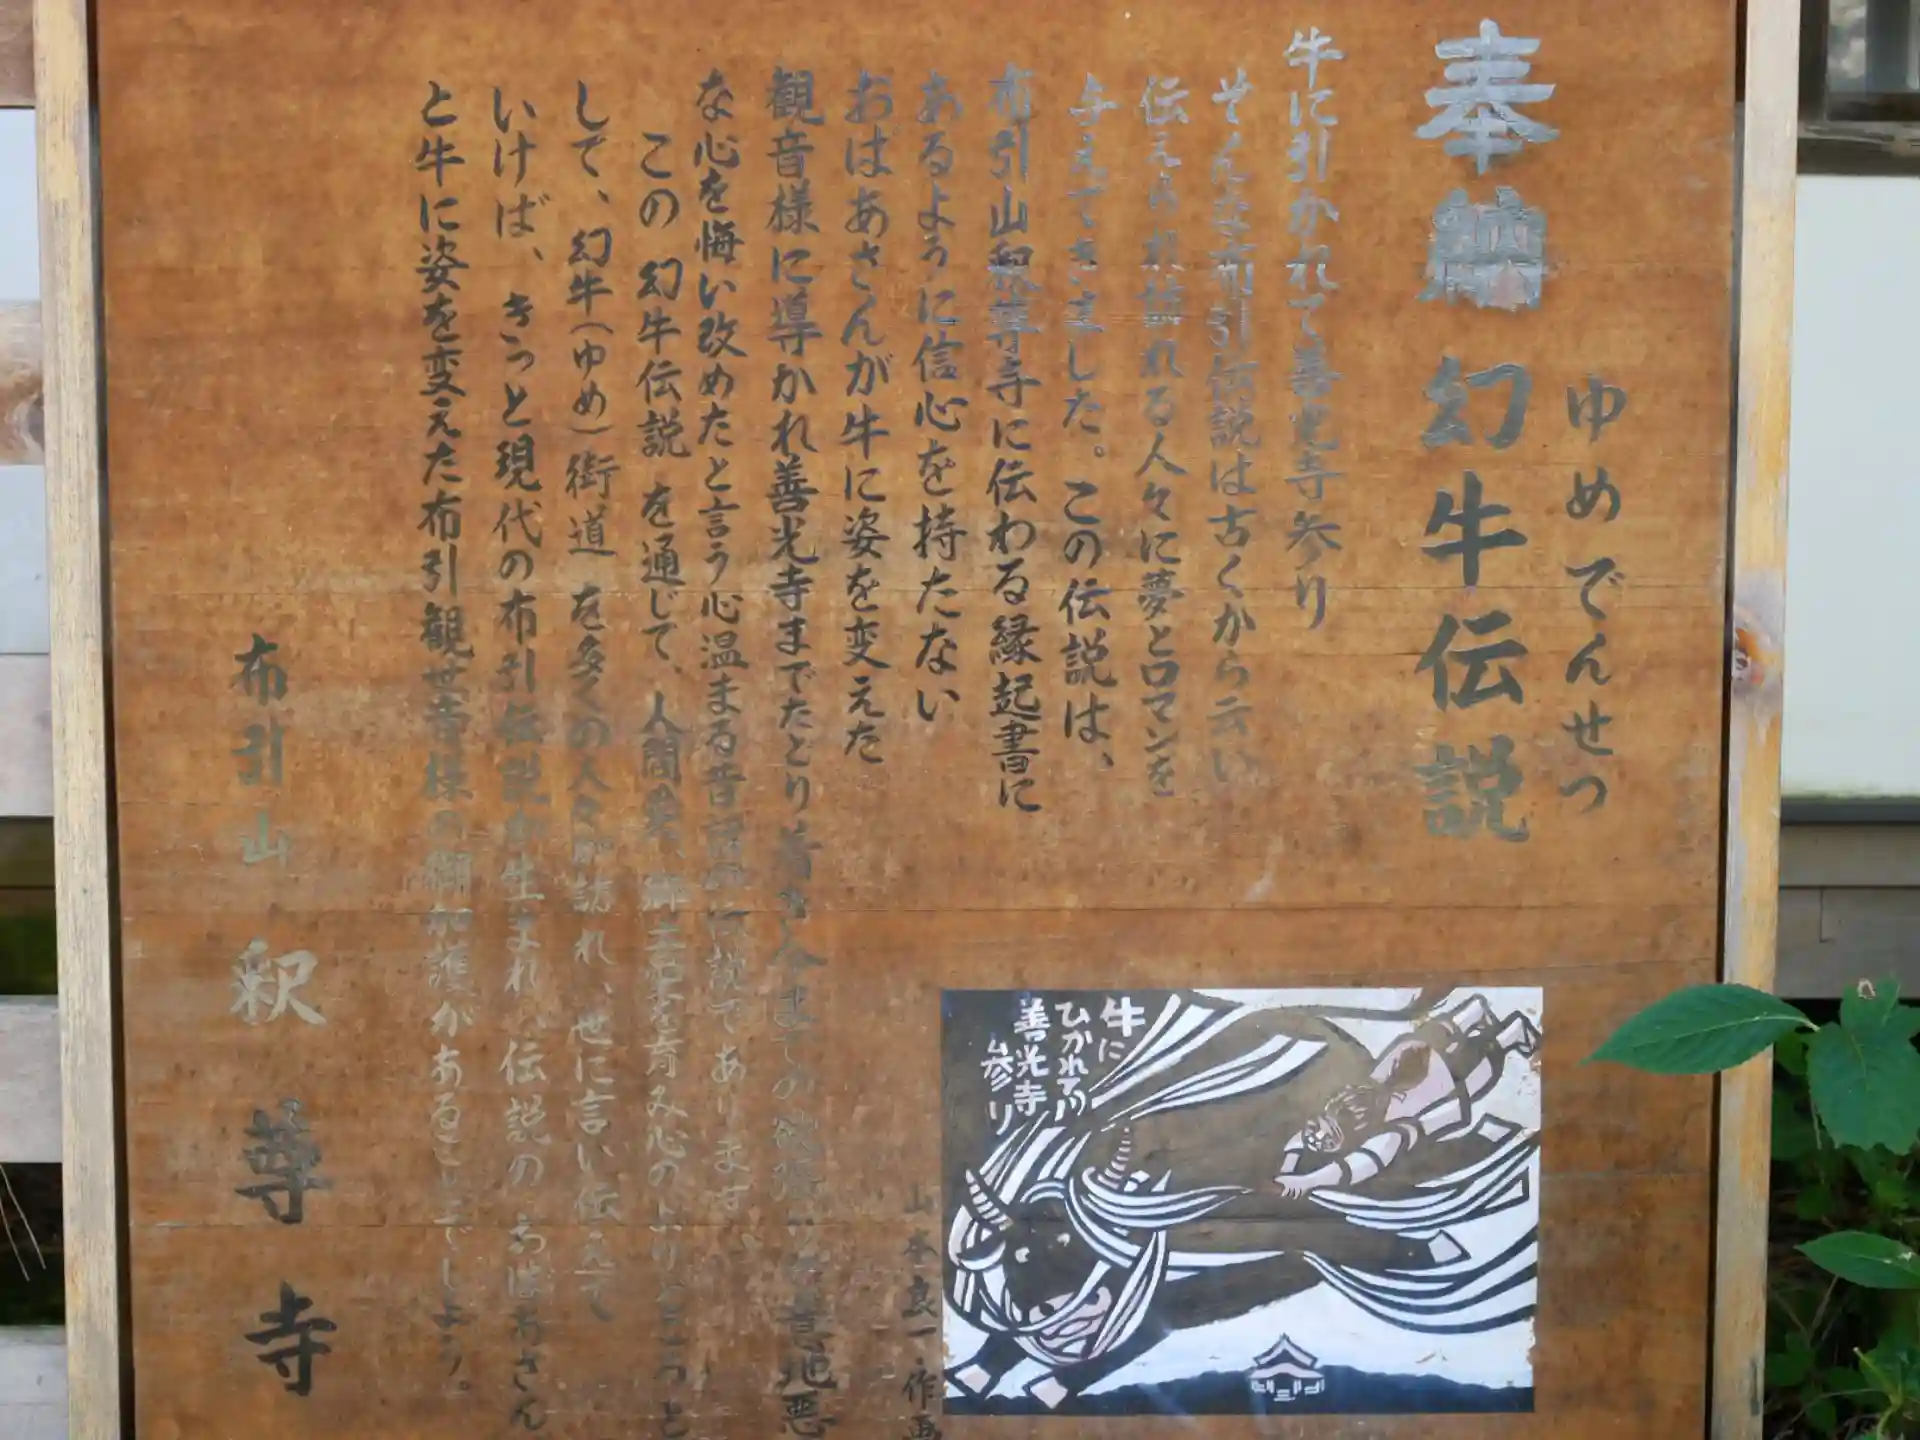 ゆめでんせつ
奉納 幻牛伝説
牛に引かれて善光寺参り
そんな布引伝説は古くから云い
伝えられ訪れる人々に夢とロマンを
与えてきました。この伝説は、
布引山釈尊寺に伝わる縁起書に
あるように信心を持たない
おばあさんが牛に姿を変えた
観音様に導かれ善光寺までたどり着き今までの欲張りな意地悪
な心を悔い改めたと言う心温まる昔話の伝説であります
この 幻牛伝説 を通じて、人間愛、郷土愛を育み心のよりどころと
して、幻牛(ゆめ)街道 を多くの人々が訪れ、世に言い伝えて
いけば、きっと現代の布引伝説が生まれ、伝説のおばあさん
と牛に姿を変えた布引観世音様の御加護があることでしょう。
布引山 釈尊寺
牛に
ひかれて
善光寺
参り
山本良一作画